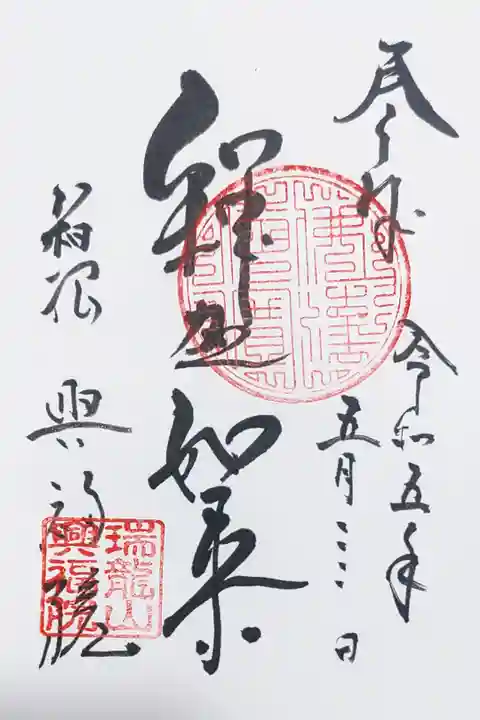 奉拝
令和五年
五月三日
釋迦如来
箱根 興福院
瑞龍山
興福院